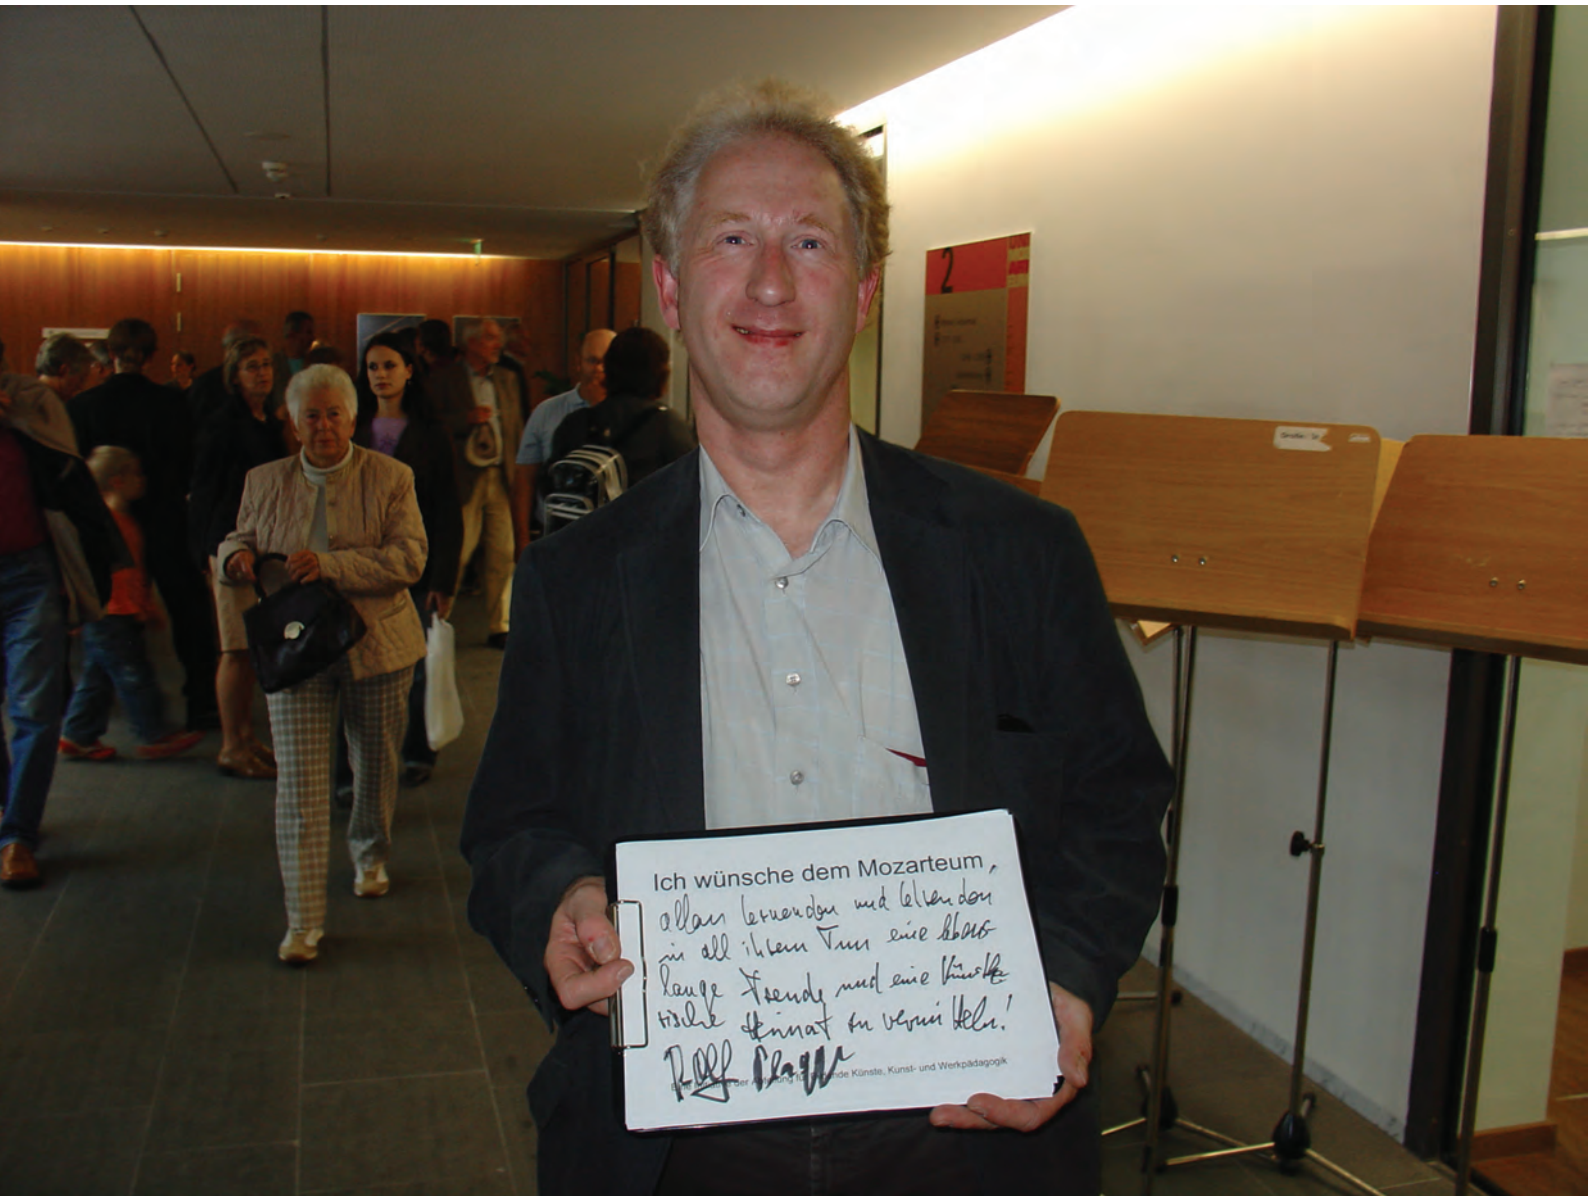 2
Ich wünsche dem Mozarteum,
allen lernenden und lehrenden
in all ihrem Tun eine lebens-
lange Freude und eine künstle-
rische Heimat zu vermitteln!
Rolf
der Abteilung für Bildende Künste, Kunst- und Werkpädagogik